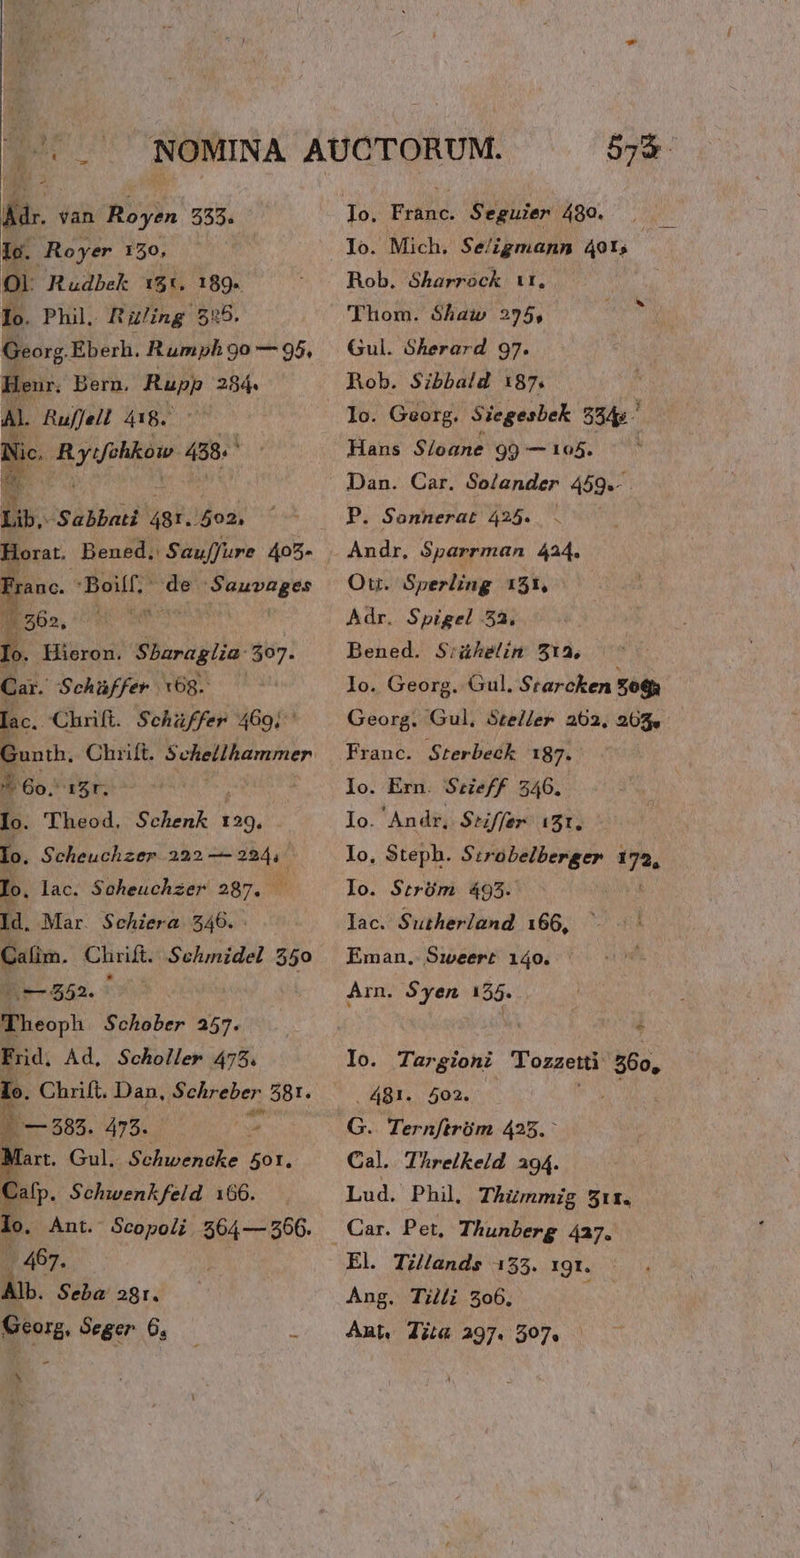 NOMINA AUCTORUM. 573
Adr. van Royen 333.
Io. Royer 130.
Ol. Rudbek 131. 189.
Io. Phil. Rüling 326.
Georg. Eberh. Rumph 90 — 95.
Henr. Bern. Rupp 284.
Al. Ruſſell 418.
Nic. Rytſchkow 438.
Lib. Sabbati 481. 502.
Horat. Bened. Sauſſure 403.
Franc. Boiſſ. de Sauvages
362.
Io. Hieron. Sbaraglia 307.
Car. Schäffer 168.
Iac. Chriſt. Schäffer 469.
Gunth. Chriſt. Schellhammer
60. 131.
Io. Theod. Schenk 129.
Io. Scheuchzer 222 — 224.
Io. Iac. Scheuchzer 287.
Id. Mar. Schiera 346.
Caſim. Chriſt. Schmidel 350
— 352.
Theoph. Schober 257.
Frid. Ad. Scholler 473.
Io. Chriſt. Dan. Schreber 381.
— 383. 473.
Mart. Gul. Schwencke 501.
Caſp. Schwenkfeld 166.
Io. Ant. Scopoli 364 — 366.
467.
Alb. Seba 281.
Georg. Seger 6.
Io. Franc. Seguier 480.
Io. Mich. Seligmann 401.
Rob. Sharrock 11.
Thom. Shaw 275.
Gul. Sherard 97.
Rob. Sibbald 187.
Io. Georg. Siegesbek 334.
Hans Sloane 99 — 105.
Dan. Car. Solander 459.
P. Sonnerat 425.
Andr. Sparrman 424.
Ott. Sperling 131.
Adr. Spigel 32.
Bened. Stähelin 312.
Io. Georg. Gul. Starcken 309
Georg. Gul. Steller 262. 263.
Franc. Sterbeck 187.
Io. Ern. Stieff 346.
Io. Andr. Stiſſer 131.
Io. Steph. Strobelberger 172.
Io. Ström 493.
Iac. Sutherland 166.
Eman. Sweert 140.
Arn. Syen 135.
Io. Targioni Tozzetti 360.
481. 502.
G. Ternſtröm 423.
Cal. Threlkeld 294.
Lud. Phil. Thümmig 311.
Car. Pet. Thunberg 427.
El. Tillands 133. 191.
Ang. Tilli 306.
Ant. Tita 297. 307.